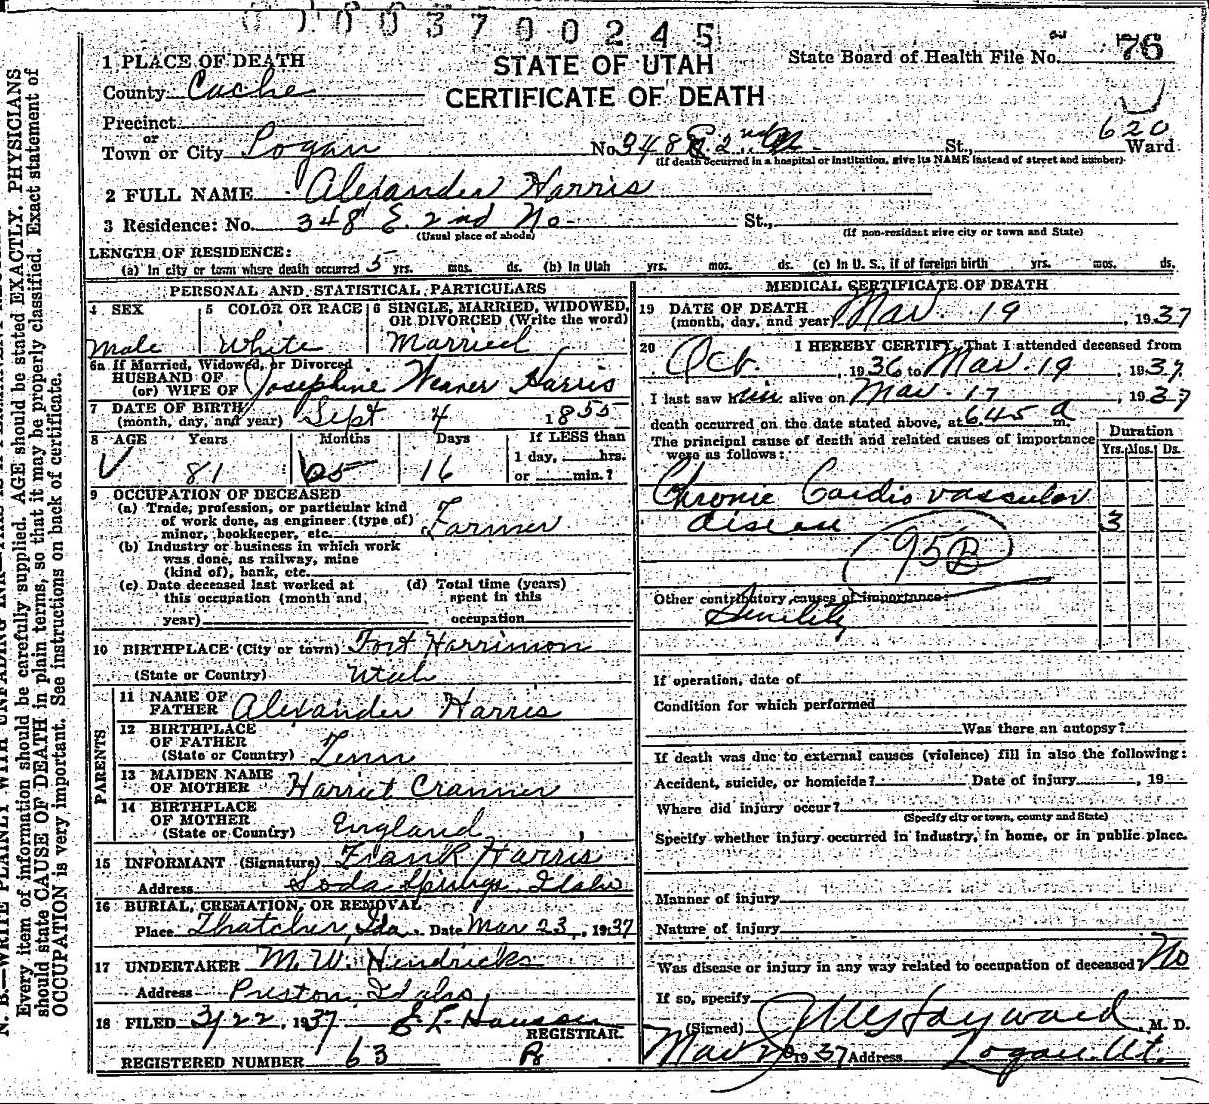 0 0 0 0 3 7 0 0 2 4 5
STATE OF UTAH
CERTIFICATE OF DEATH
State Board of Health File No. 76
1 PLACE OF DEATH
County Cache
Precinct
or
Town or City Logan No. 348 E. 2nd N. St., 620 Ward
(If death occurred in a hospital or institution, give its NAME instead of street and number)
2 FULL NAME Alexander Harris
3 Residence: No. 348 E. 2nd No. St.,
(Usual place of abode) (If non-resident give city or town and State)
LENGTH OF RESIDENCE:
(a) In city or town where death occurred 5 yrs. mos. ds. (b) In Utah yrs. mos. ds. (c) In U. S., if of foreign birth yrs. mos. ds.
PERSONAL AND STATISTICAL PARTICULARS
4 SEX Male
5 COLOR OR RACE White
6 SINGLE, MARRIED, WIDOWED, OR DIVORCED (Write the word) Married
6a If Married, Widowed, or Divorced
HUSBAND OF
(or) WIFE OF Josephine Weaver Harris
7 DATE OF BIRTH
(month, day, and year) Sept 4 1855
8 AGE Years Months Days If LESS than
81 16 1 day, hrs.
or min.?
9 OCCUPATION OF DECEASED
(a) Trade, profession, or particular kind
of work done, as engineer (type of) Farmer
minor, bookkeeper, etc.
(b) Industry or business in which work
was done, as railway, mine
(kind of), bank, etc.
(c) Date deceased last worked at
this occupation (month and
year)
(d) Total time (years)
spent in this
occupation
10 BIRTHPLACE (City or town) Fort Harrimon
(State or Country) Utah
PARENTS
11 NAME OF
FATHER Alexander Harris
12 BIRTHPLACE
OF FATHER
(State or Country) Tenn
13 MAIDEN NAME
OF MOTHER Harriet Cranner
14 BIRTHPLACE
OF MOTHER
(State or Country) England
15 INFORMANT (Signature) Frank Harris
Address Soda Springs, Idaho
16 BURIAL, CREMATION, OR REMOVAL
Place Thatcher, Ida. Date Mar 23, 1937
17 UNDERTAKER M. W. Hendricks
Address Preston, Idaho
18 FILED 3/22, 1937
REGISTRAR.
REGISTERED NUMBER 63
MEDICAL CERTIFICATE OF DEATH
19 DATE OF DEATH
(month, day, and year) Mar. 19, 1937
20 I HEREBY CERTIFY, That I attended deceased from
Oct. , 1936 to Mar. 19 , 1937
I last saw him alive on Mar. 17 , 1937
death occurred on the date stated above, at 6.45 a m.
The principal cause of death and related causes of importance
were as follows:
Duration
Yrs. Mos. Ds.
Chronic Cardio vascular
disease 3
95B
Other contributory causes of importance:
Senility
If operation, date of
Condition for which performed
Was there an autopsy?
If death was due to external causes (violence) fill in also the following:
Accident, suicide, or homicide? Date of injury , 19
Where did injury occur?
(Specify city or town, county and State)
Specify whether injury occurred in industry, in home, or in public place.
Manner of injury
Nature of injury
Was disease or injury in any way related to occupation of deceased? No
If so, specify
(Signed) Hayward, M. D.
Mar 20 1937 Address Logan, Ut.
Every item of information should be carefully supplied. AGE should be stated EXACTLY. PHYSICIANS
should state CAUSE OF DEATH in plain terms, so that it may be properly classified. Exact statement of
OCCUPATION is very important. See instructions on back of certificate.
N. B.—WRITE PLAINLY WITH UNFADING INK